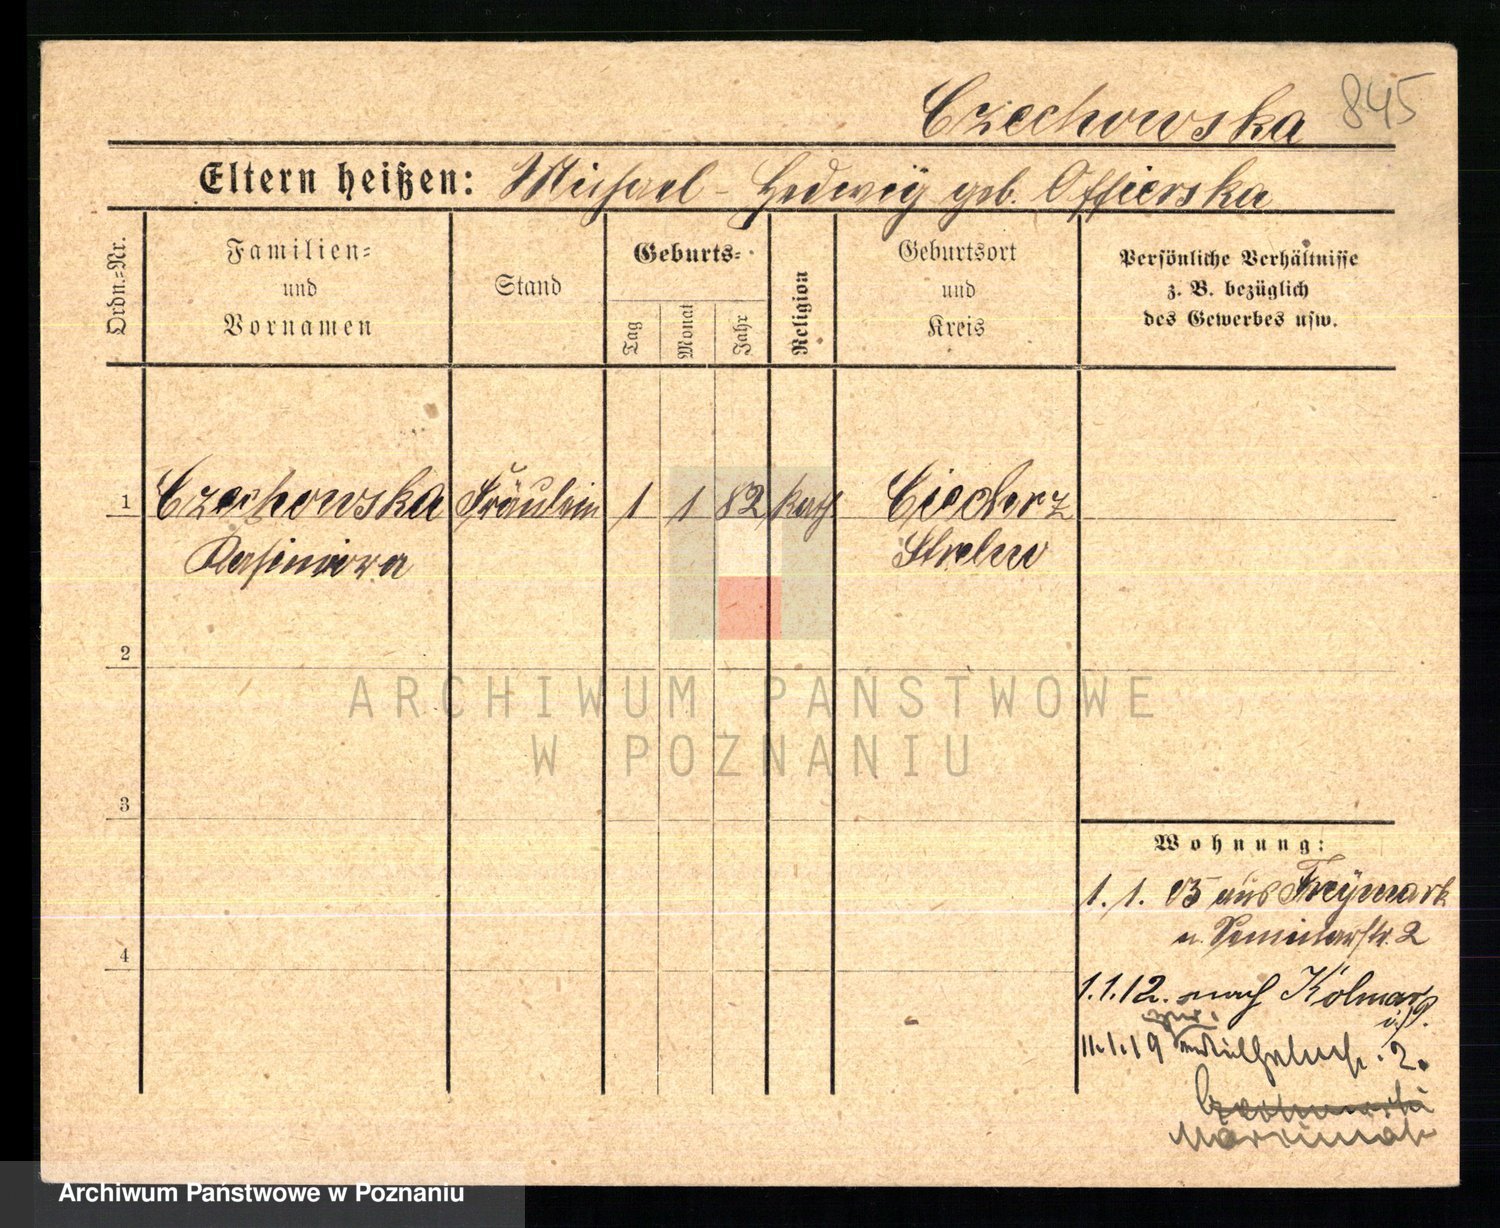 Czechowska 845
Eltern heißen: Michael - Hedwig geb. Offierska
Ordn.=Nr.
Familien=
und
Vornamen
Stand
Geburts=
Tag
Monat
Jahr
Religion
Geburtsort
und
Kreis
Persönliche Verhältnisse
z. B. bezüglich
des Gewerbes usw.
1 Czechowska Fräulein 1 1 82 kath Ciecherz
Kasimira Strelno
2
ARCHIWUM PAŃSTWOWE
W POZNANIU
3
Wohnung:
1. 1. 05 aus Freymark
n. Seminarstr. 2
4
1.1.12. nach Kolmar
i/P.
zur.
11.1.19 2.
Archiwum Państwowe w Poznaniu